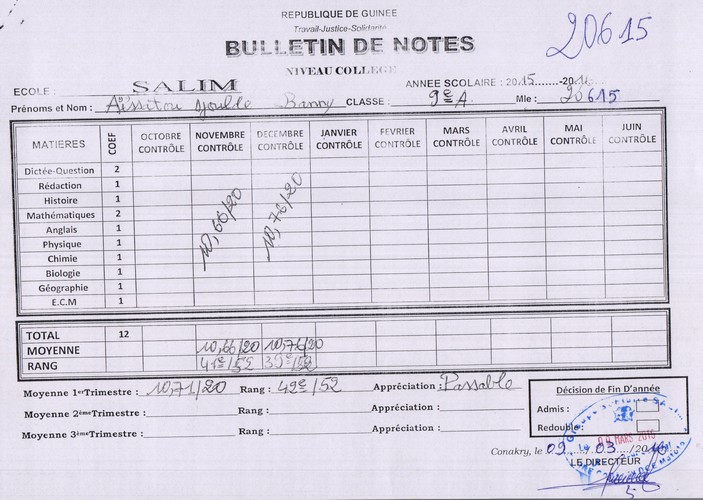 REPUBLIQUE DE GUINEE
Travail-Justice-Solidarité
BULLETIN DE NOTES
20615
NIVEAU COLLEGE
ECOLE : SALIM ANNEE SCOLAIRE : 2015......-2016
Prénoms et Nom : Aïssatou Barry CLASSE : 9e A Mle : 20615
MATIERES COEF OCTOBRE CONTRÔLE NOVEMBRE CONTRÔLE DECEMBRE CONTRÔLE JANVIER CONTRÔLE FEVRIER CONTRÔLE MARS CONTRÔLE AVRIL CONTRÔLE MAI CONTRÔLE JUIN CONTRÔLE
Dictée-Question 2
Rédaction 1
Histoire 1
Mathématiques 2
Anglais 1
Physique 1
Chimie 1
Biologie 1
Géographie 1
E.C.M 1
10,66/20 10,76/20
TOTAL 12
MOYENNE 10,66/20 10,76/20
RANG 41e/52 39e/52
Moyenne 1erTrimestre : 10,71/20 Rang : 42e/52 Appréciation : Passable
Moyenne 2èmeTrimestre : Rang : Appréciation :
Moyenne 3èmeTrimestre : Rang : Appréciation :
Décision de Fin D'année
Admis :
Redouble
09 MARS 2016
Conakry, le 09/03/2016
LE DIRECTEUR